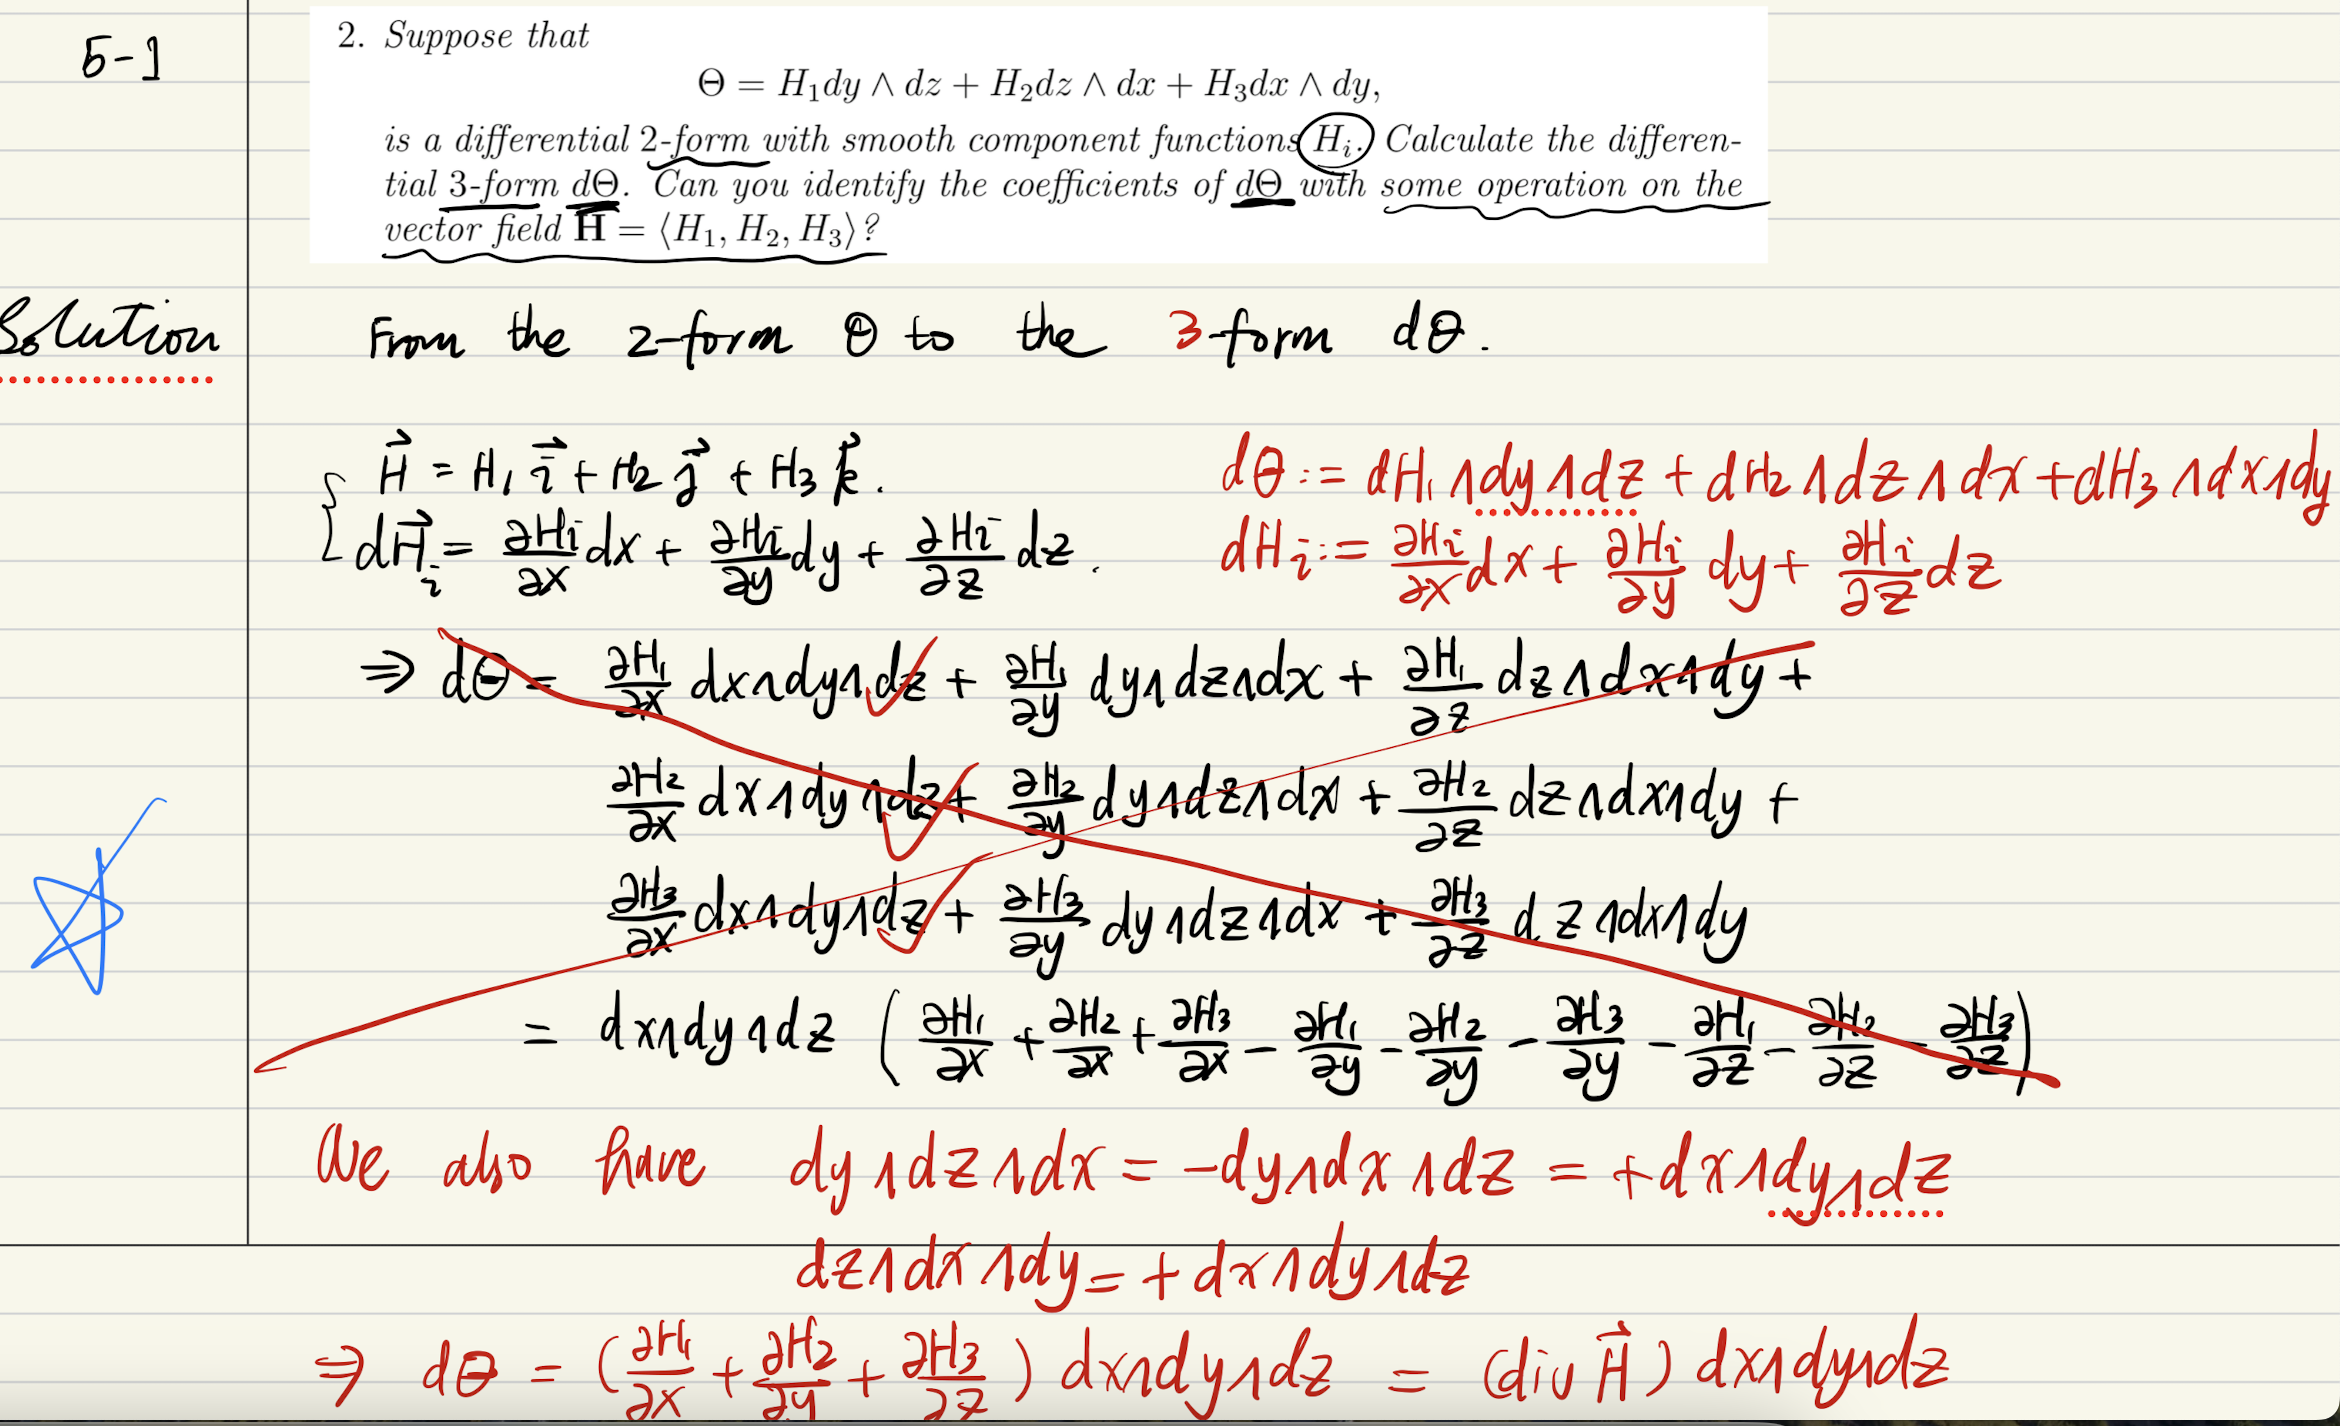 5-1
2. Suppose that
Θ = H₁dy ∧ dz + H₂dz ∧ dx + H₃dx ∧ dy,
is a differential 2-form with smooth component functions Hᵢ. Calculate the differen-
tial 3-form dΘ. Can you identify the coefficients of dΘ with some operation on the
vector field H = ⟨H₁, H₂, H₃⟩?
Solution
From the 2-form Θ to the 3-form dΘ.
H⃗ = H₁ i⃗ + H₂ j⃗ + H₃ k⃗.
dH⃗ᵢ = ∂Hᵢ/∂x dx + ∂Hᵢ/∂y dy + ∂Hᵢ/∂z dz.
dΘ := dH₁∧dy∧dz + dH₂∧dz∧dx + dH₃∧dx∧dy
dHᵢ := ∂Hᵢ/∂x dx + ∂Hᵢ/∂y dy + ∂Hᵢ/∂z dz
⇒ dΘ = ∂H₁/∂x dx∧dy∧dz + ∂H₁/∂y dy∧dz∧dx + ∂H₁/∂z dz∧dx∧dy +
∂H₂/∂x dx∧dy∧dz + ∂H₂/∂y dy∧dz∧dx + ∂H₂/∂z dz∧dx∧dy +
∂H₃/∂x dx∧dy∧dz + ∂H₃/∂y dy∧dz∧dx + ∂H₃/∂z dz∧dx∧dy
= dx∧dy∧dz (∂H₁/∂x + ∂H₂/∂x + ∂H₃/∂x - ∂H₁/∂y - ∂H₂/∂y - ∂H₃/∂y - ∂H₁/∂z - ∂H₂/∂z - ∂H₃/∂z)
We also have dy∧dz∧dx = -dy∧dx∧dz = +dx∧dy∧dz
dz∧dx∧dy = +dx∧dy∧dz
⇒ dΘ = (∂H₁/∂x + ∂H₂/∂y + ∂H₃/∂z) dx∧dy∧dz = (div H⃗) dx∧dy∧dz